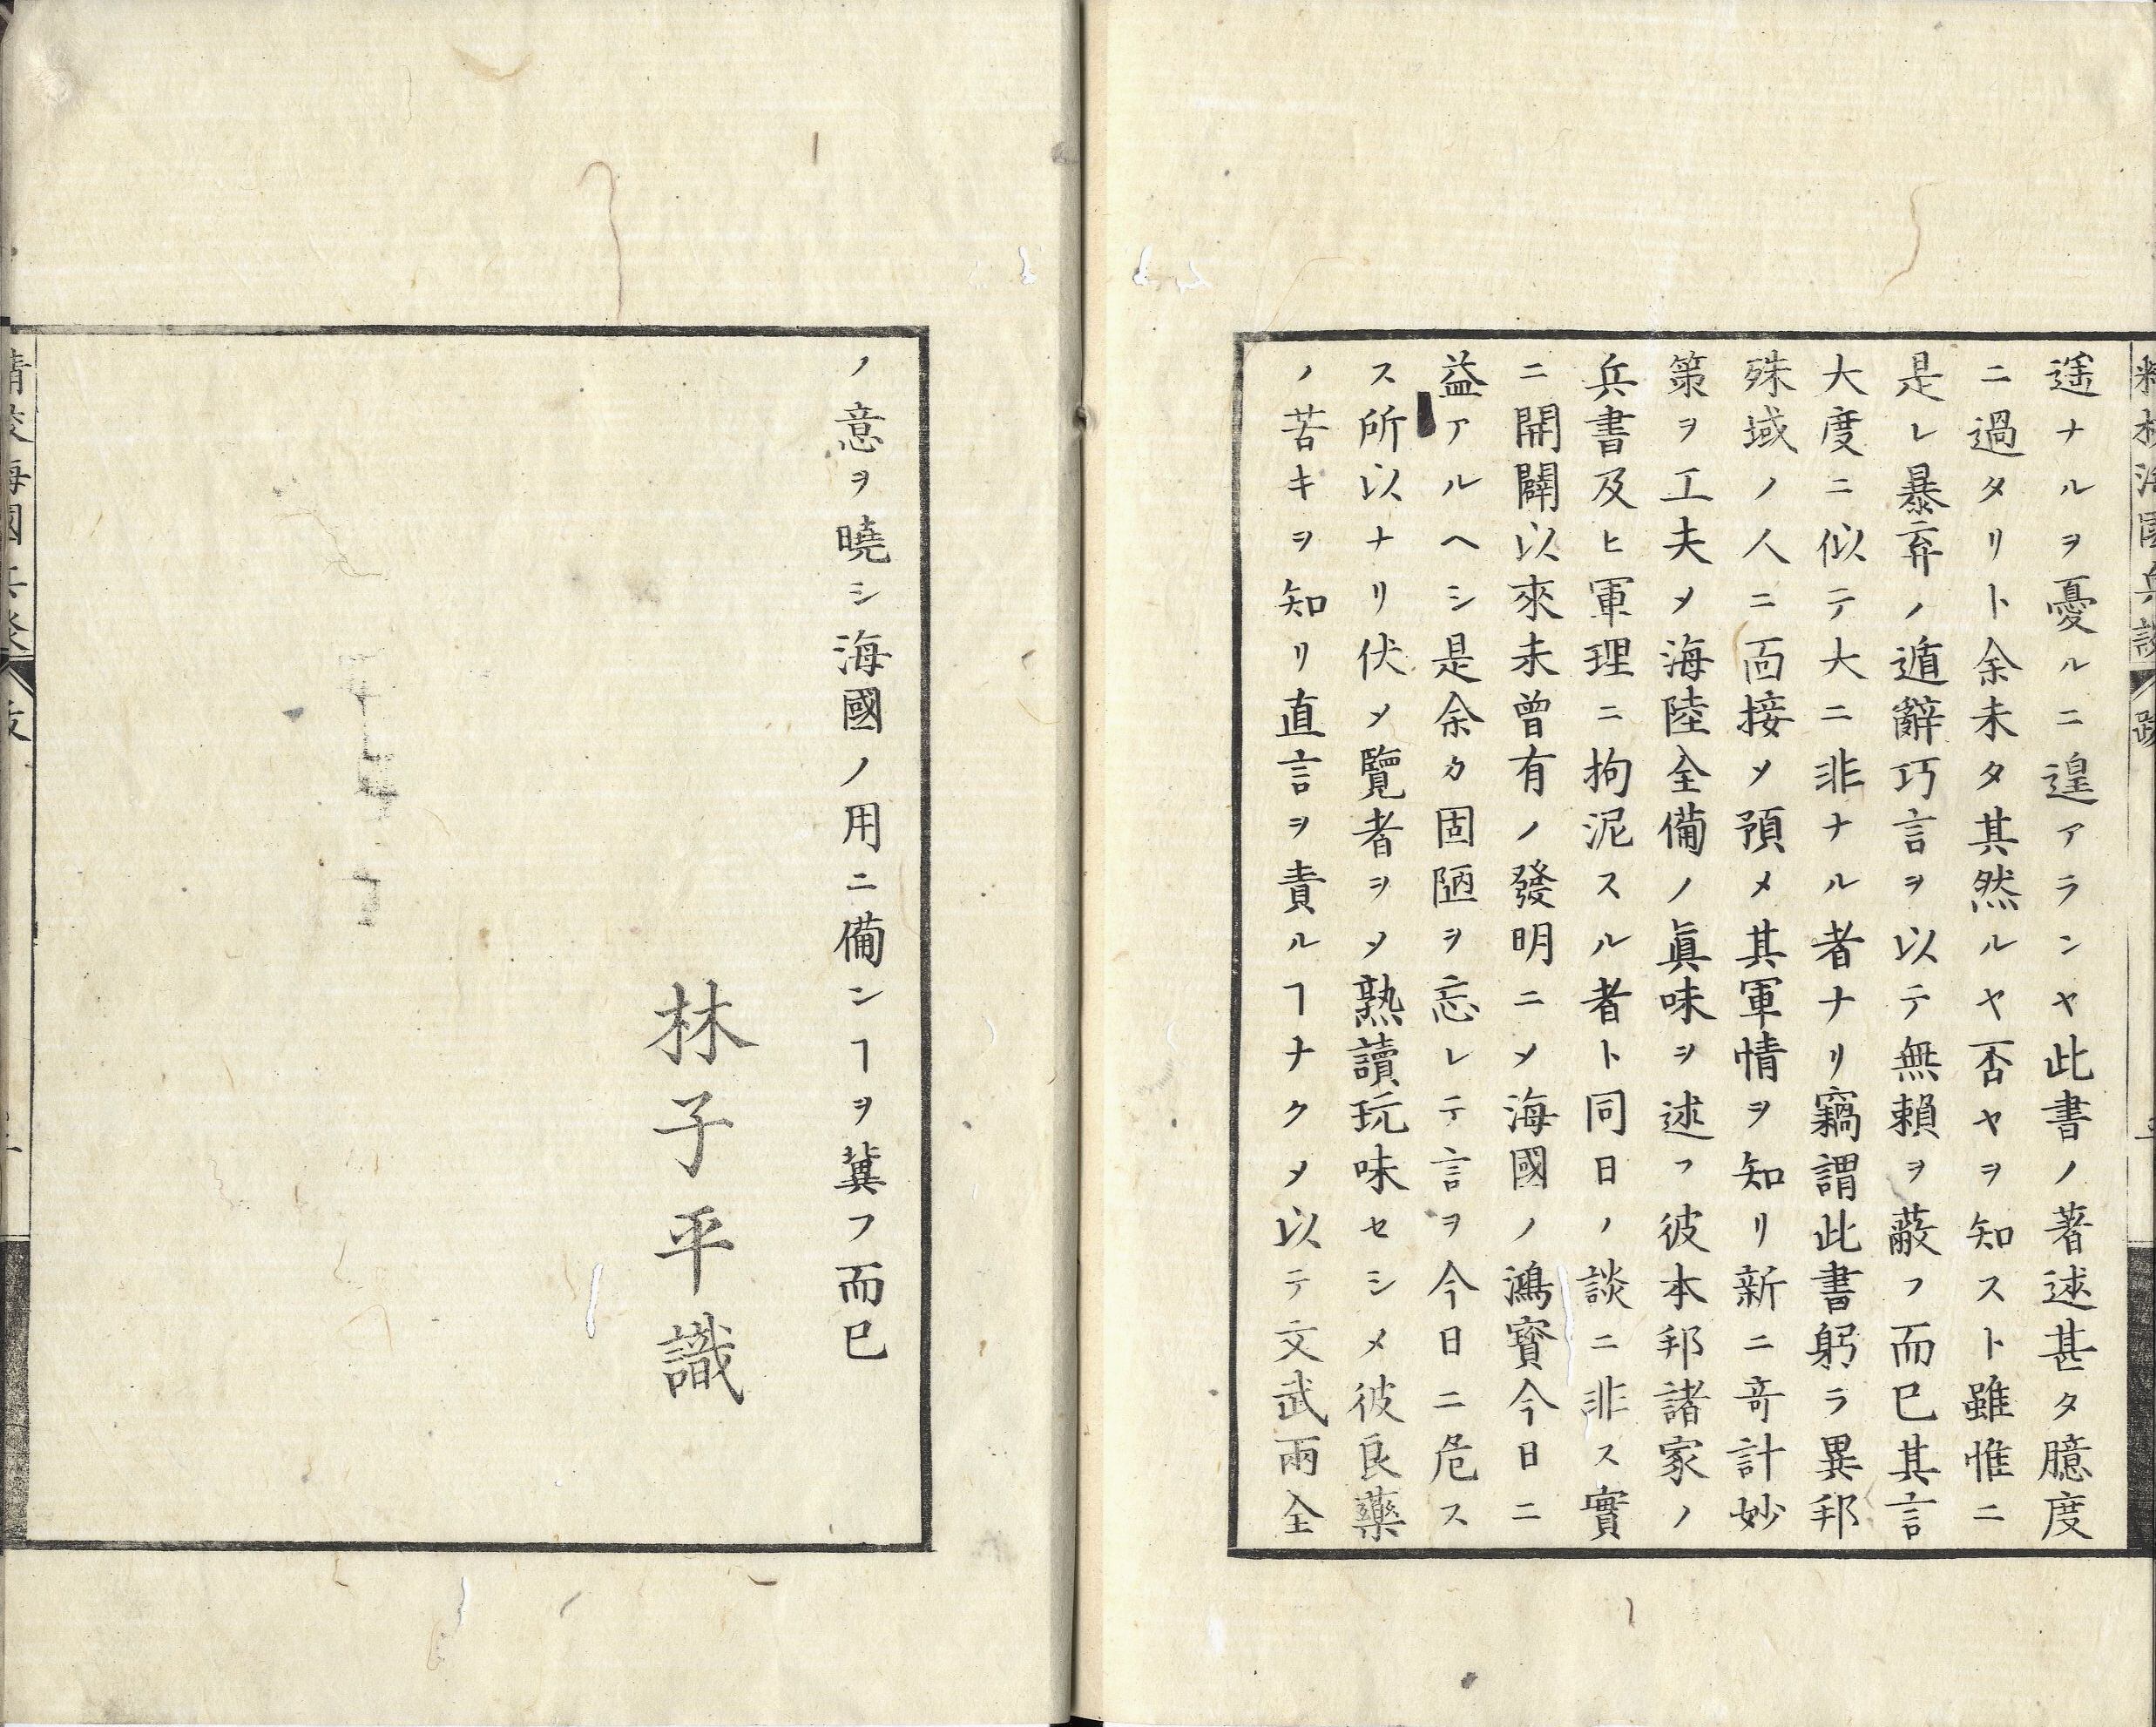 遥ナルヲ憂ルニ遑アランヤ此書ノ著述甚タ臆度
ニ過タリト余未タ其然ルヤ否ヤヲ知スト雖惟ニ
是レ暴弃ノ遁辭巧言ヲ以テ無賴ヲ蔽フ而已其言
大度ニ似テ大ニ非ナル者ナリ竊謂此書躬ラ異邦
殊域ノ人ニ面接ノ預メ其軍情ヲ知リ新ニ竒計妙
策ヲ工夫ノ海陸全備ノ眞味ヲ述フ彼本邦諸家ノ
兵書及ヒ軍理ニ拘泥スル者ト同日ノ談ニ非ス實
ニ開闢以來未曾有ノ發明ニノ海國ノ鴻寳今日ニ
益アルヘシ是余カ固陋ヲ忘レテ言ヲ今日ニ危ス
ス所以ナリ伏ノ覽者ヲノ熟讀玩味セシメ彼良藥
ノ苦キヲ知リ直言ヲ責ルヿナクノ以テ文武兩全
ノ意ヲ曉シ海國ノ用ニ備ンヿヲ冀フ而已
林子平識